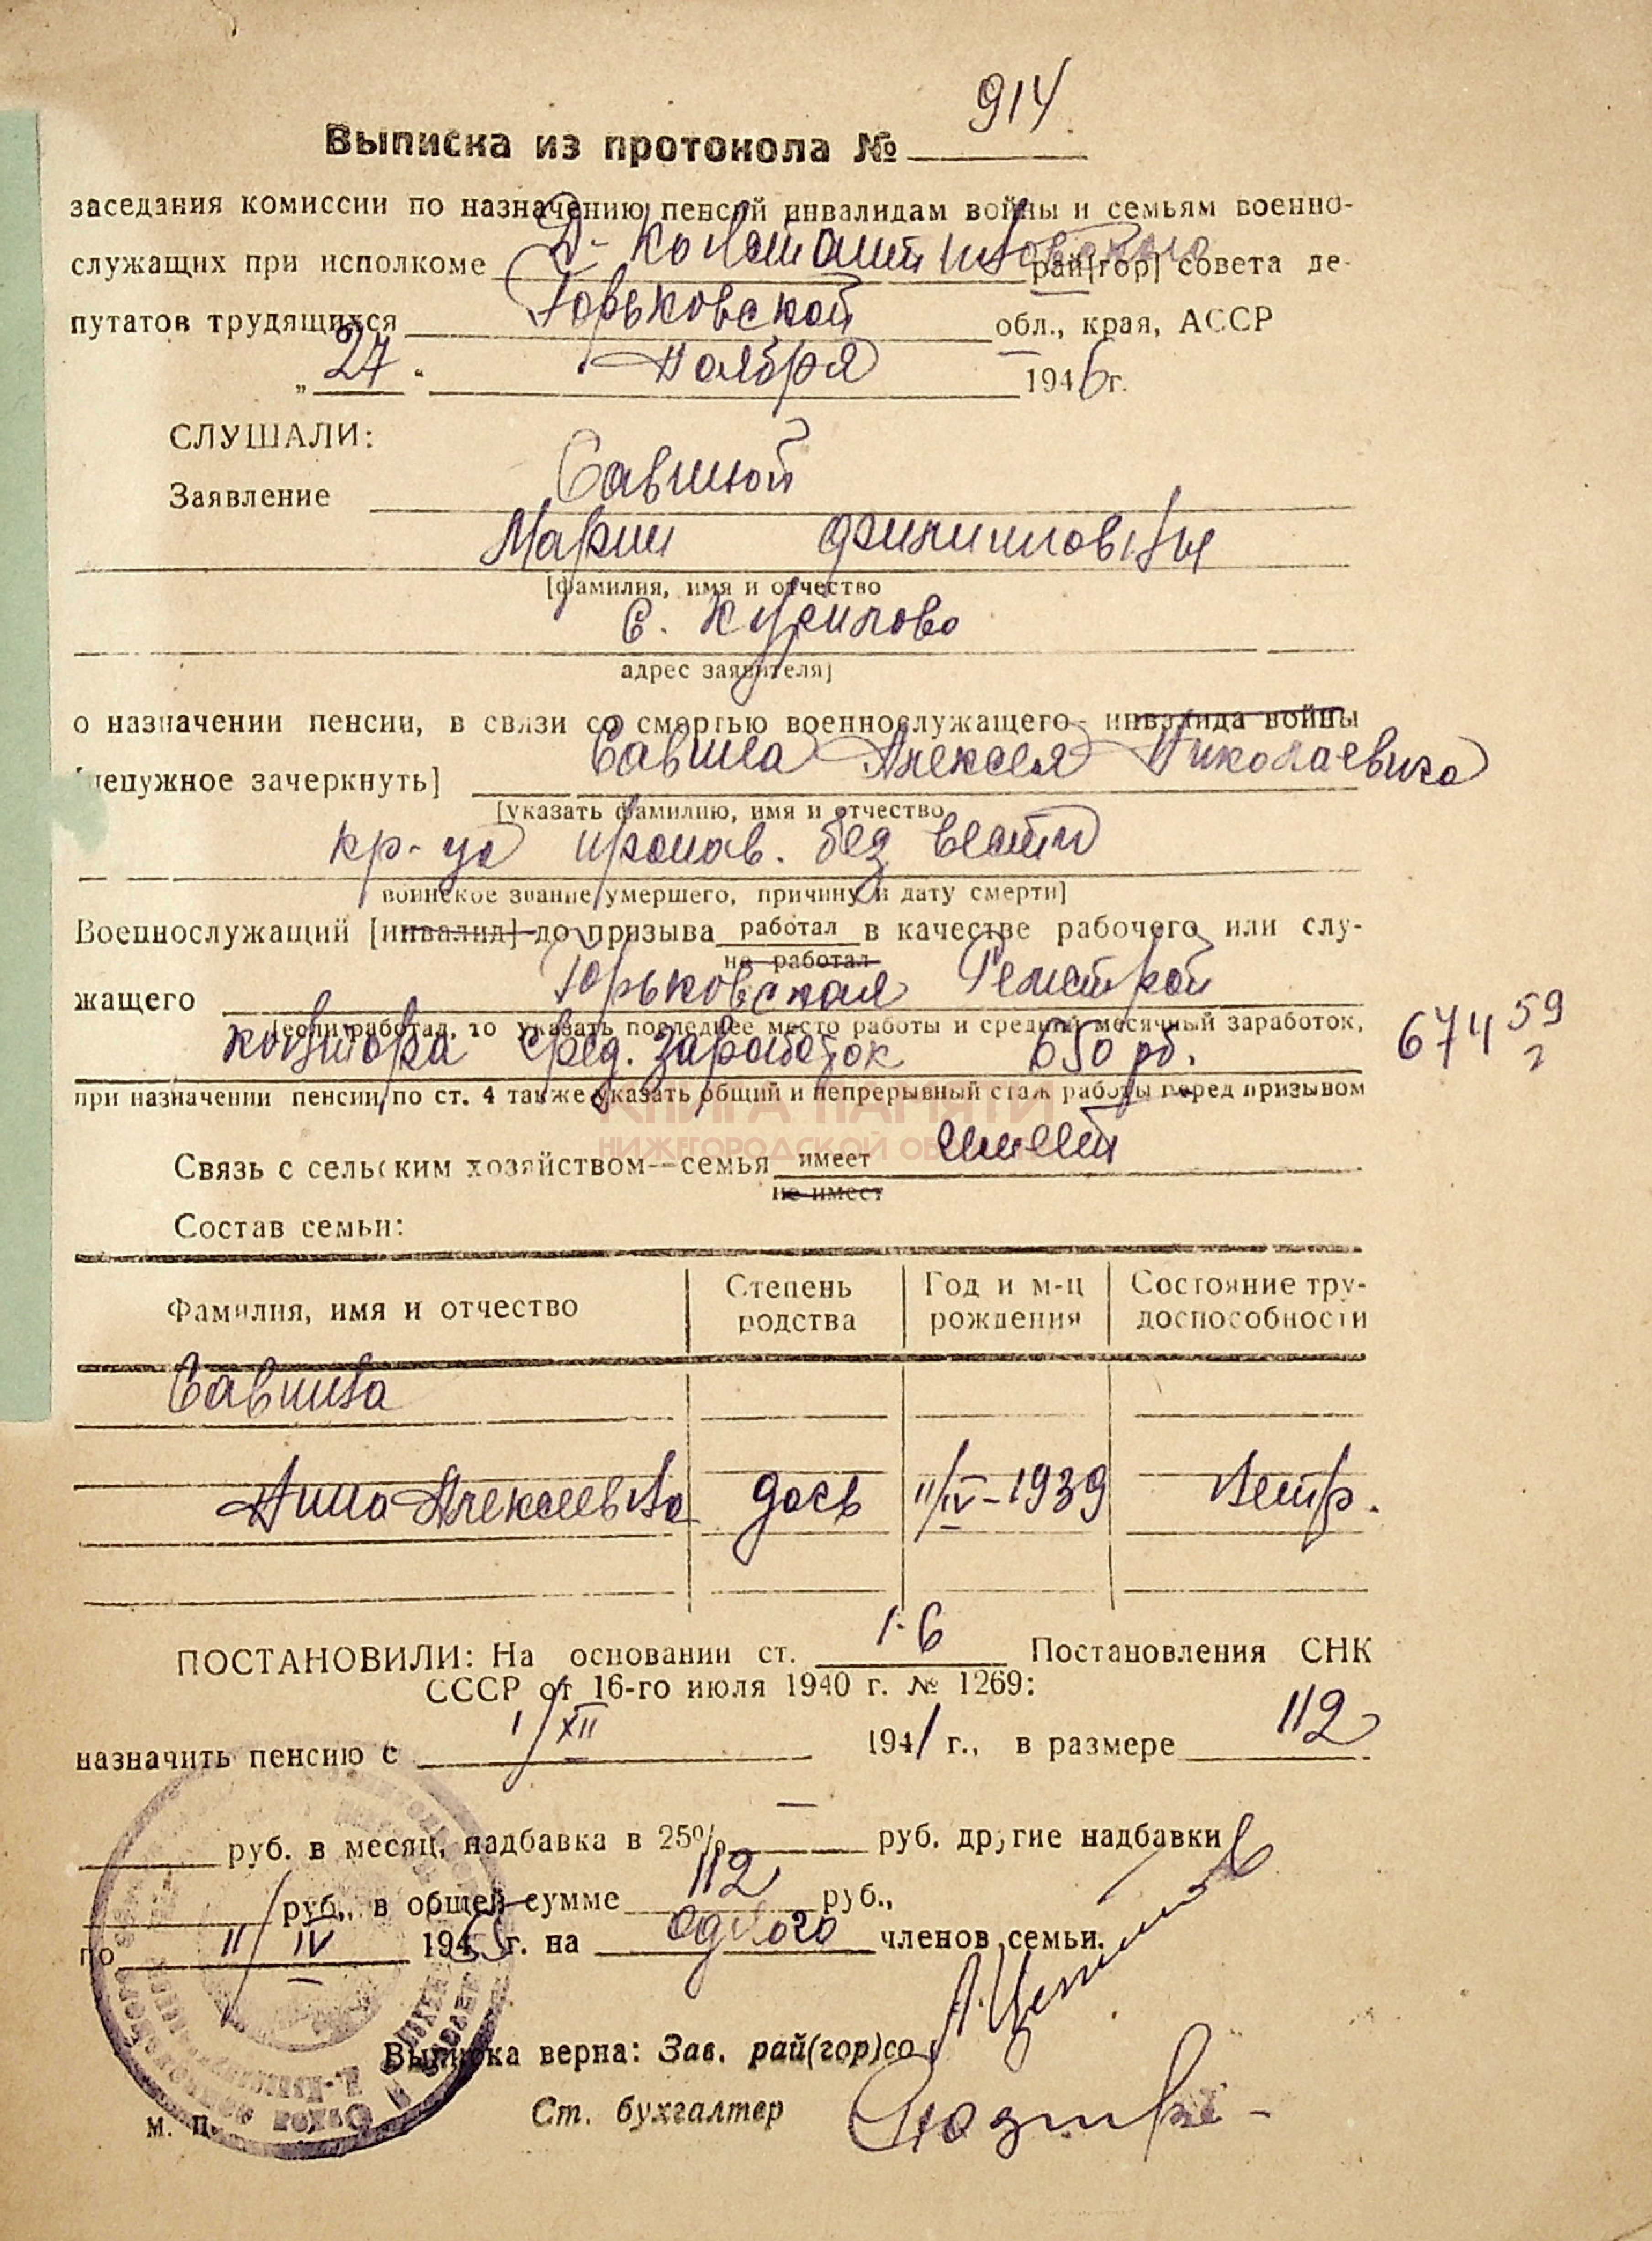 914
Выписка из протокола №
заседания комиссии по назначению пенсий инвалидам войны и семьям военно-
служащих при исполкоме Д-Константиновского рай[гор] совета де-
путатов трудящихся Горьковской обл., края, АССР
„ 27 “ Ноября 1946 г.
СЛУШАЛИ:
Заявление Савиной
Марии Филипповны
[фамилия, имя и отчество
С. Курилово
адрес заявителя]
о назначении пенсии, в связи со смертью военнослужащего- инвалида войны
Савина Алексея Николаевича
[ненужное зачеркнуть]
[указать фамилию, имя и отчество
кр-ца пропав. без вести
воинское звание умершего, причину и дату смерти]
Военнослужащий [инвалид] до призыва работал в качестве рабочего или слу-
не работал
жащего Горьковская
[если работал, то указать последнее место работы и средний месячный заработок,
контора сред. заработок 650 рб. 674 59
при назначении пенсии по ст. 4 также указать общий и непрерывный стаж работы перед призывом
КНИГА ПАМЯТИ
НИЖЕГОРОДСКОЙ
Связь с сельским хозяйством—семья имеет имеет
не имеет
Состав семьи:
Фамилия, имя и отчество Степень родства Год и м-ц рождения Состояние тру-доспособности
Савина
Анна Алексеевна дочь 11/IV-1939 нетр.
ПОСТАНОВИЛИ: На основании ст. 1-6 Постановления СНК
СССР от 16-го июля 1940 г. № 1269:
назначить пенсию с 1/XII 1941 г., в размере 112
руб. в месяц, надбавка в 25% — руб. другие надбавки
руб., в общей сумме 112 руб.,
по 11/IV 195 г. на одного членов семьи.
Выписка верна: Зав. рай(гор)со
Ст. бухгалтер
м. п.